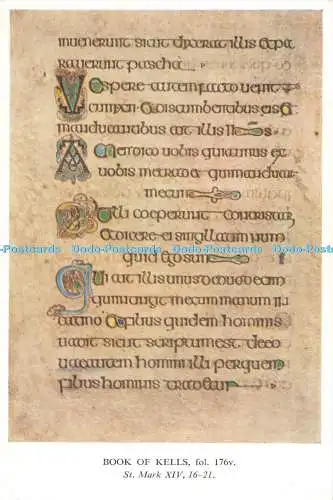 inuenerunt sicut dixerat illis et pa
rauerunt pascha
Vespere autem facto uenit
cum xii et discumbentibus eis et
manducantibus ait illis ihs
Amen dico uobis quia unus ex
uobis me tradet qui manducat
mecum
At illi coeperunt contristari
et dicere ei singillatim num
quid ego sum
Qui ait illis unus ex duodecim
qui intingit mecum manum in
catino Et filius quidem hominis
uadit sicut scriptum est de eo
uae autem homini illi per quem
filius hominis tradetur
-Postcards Dodo-Postcards Dodo-Postcards Dodo-Postcards Dodo-
BOOK OF KELLS, fol. 176v.
St. Mark XIV, 16–21.